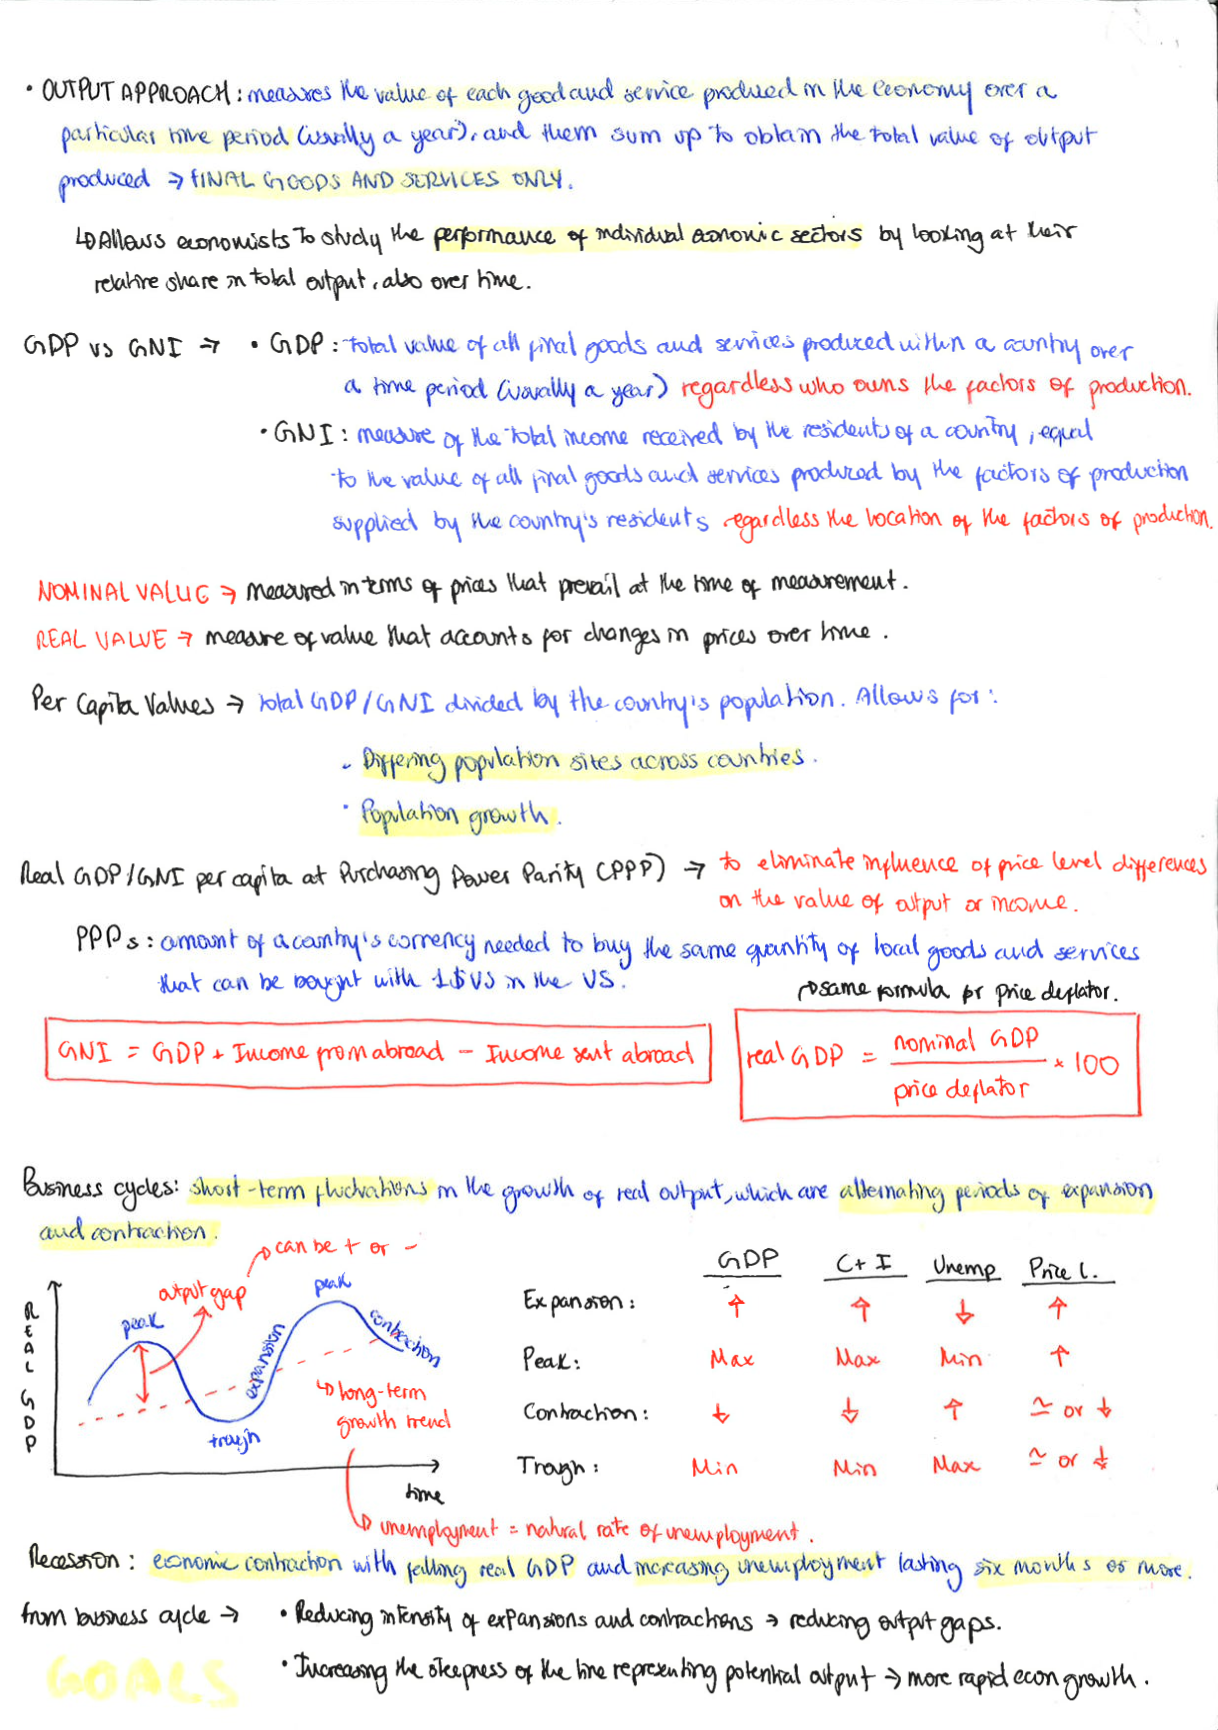 • OUTPUT APPROACH: measures the value of each good and service produced in the economy over a
particular time period (usually a year), and them sum up to obtain the total value of output
produced → FINAL GOODS AND SERVICES ONLY.
↳ Allows economists to study the performance of individual economic sectors by looking at their
relative share in total output, also over time.
GDP vs GNI → • GDP: total value of all final goods and services produced within a country over
a time period (usually a year) regardless who owns the factors of production.
• GNI: measure of the total income received by the residents of a country, equal
to the value of all final goods and services produced by the factors of production
supplied by the country's residents regardless the location of the factors of production.
NOMINAL VALUE → measured in terms of prices that prevail at the time of measurement.
REAL VALUE → measure of value that accounts for changes in prices over time.
Per Capita Values → total GDP/GNI divided by the country's population. Allows for:
- Differing population sites across countries.
• Population growth.
Real GDP/GNI per capita at Purchasing Power Parity (PPP) → to eliminate influence of price level differences
on the value of output or income.
PPPs: amount of a country's currency needed to buy the same quantity of local goods and services
that can be bought with 1$US in the US.
→ same formula for price deflator.
GNI = GDP + Income from abroad - Income sent abroad
real GDP = nominal GDP / price deflator * 100
Business cycles: short-term fluctuations in the growth of real output, which are alternating periods of expansion
and contraction.
can be + or -
output gap
peak
peak
expansion
contraction
trough
↳ long-term
growth trend
REAL GDP
time
↳ unemployment = natural rate of unemployment.
GDP C+I Unemp Price l.
Expansion: ↑ ↑ ↓ ↑
Peak: Max Max Min ↑
Contraction: ↓ ↓ ↑ ≃ or ↓
Trough: Min Min Max ≃ or ↓
Recession: economic contraction with falling real GDP and increasing unemployment lasting six months or more.
from business cycle → • Reducing intensity of expansions and contractions → reducing output gaps.
GOALS
• Increasing the steepness of the line representing potential output → more rapid econ growth.